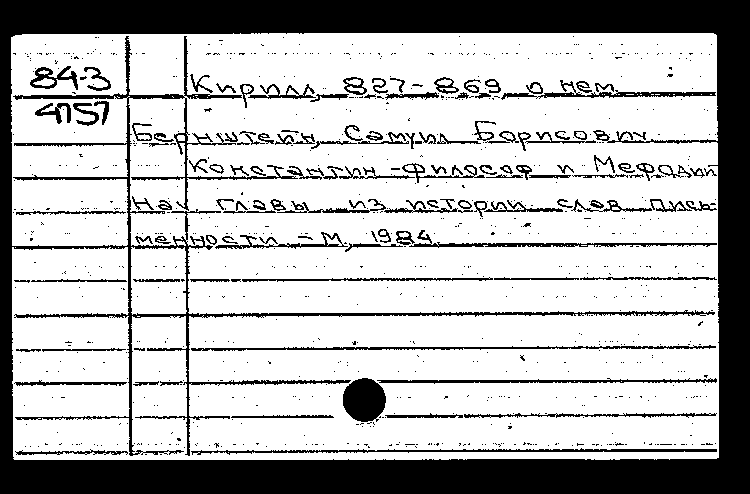 84-3
4757
Кирилл, 827-869, о нем
Бернштейн, Самуил Борисович
Константин-философ и Мефодий
Нач. главы из истории слав. пись-
менности - М., 1984.